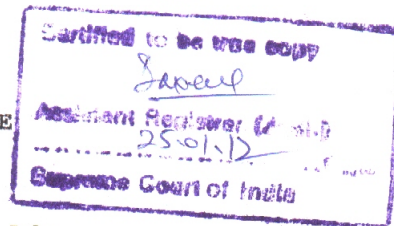 Certified to be true copy
E
Assistant Registrar (Judl.)
25.01.12
Supreme Court of India